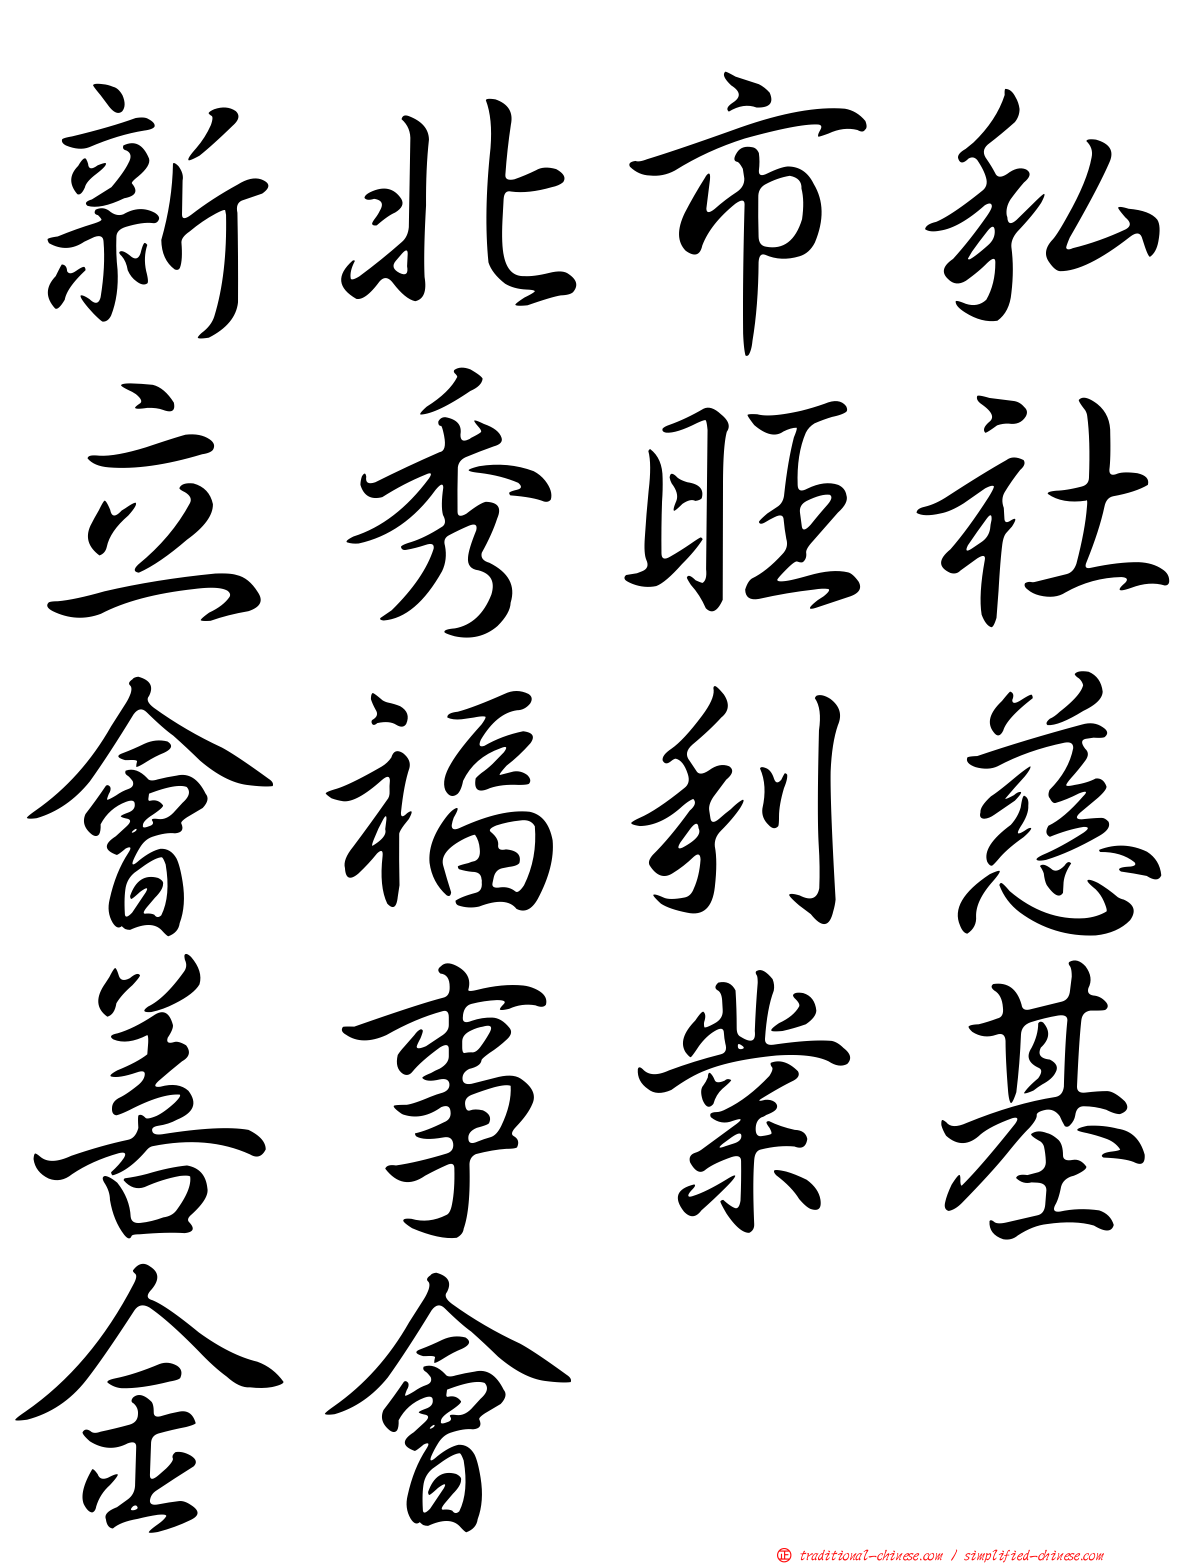 新北市私
立秀旺社
會福利慈
善事業基
金會
正 traditional-chinese.com / simplified-chinese.com